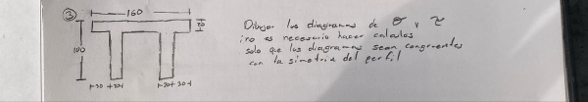 ③
160
100
Dibujar los diagramas de σ y τ
¡no es necesario hacer calculos
solo que los diagramas sean congruentes
con la simetria del perfil